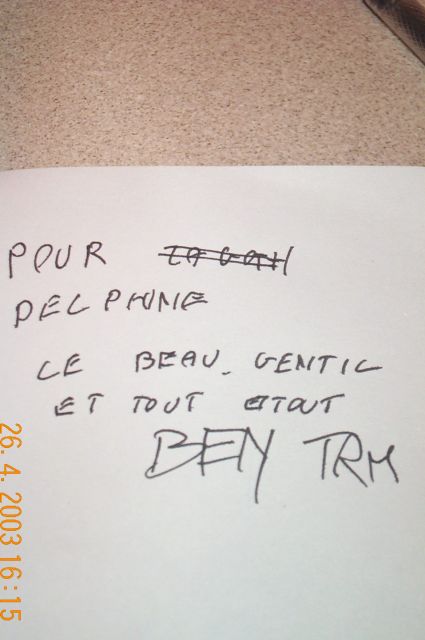 POUR
DELPHINE
LE BEAU. GENTIL
ET TOUT ETOUT
BEN TRM
26. 4. 2003 16:15